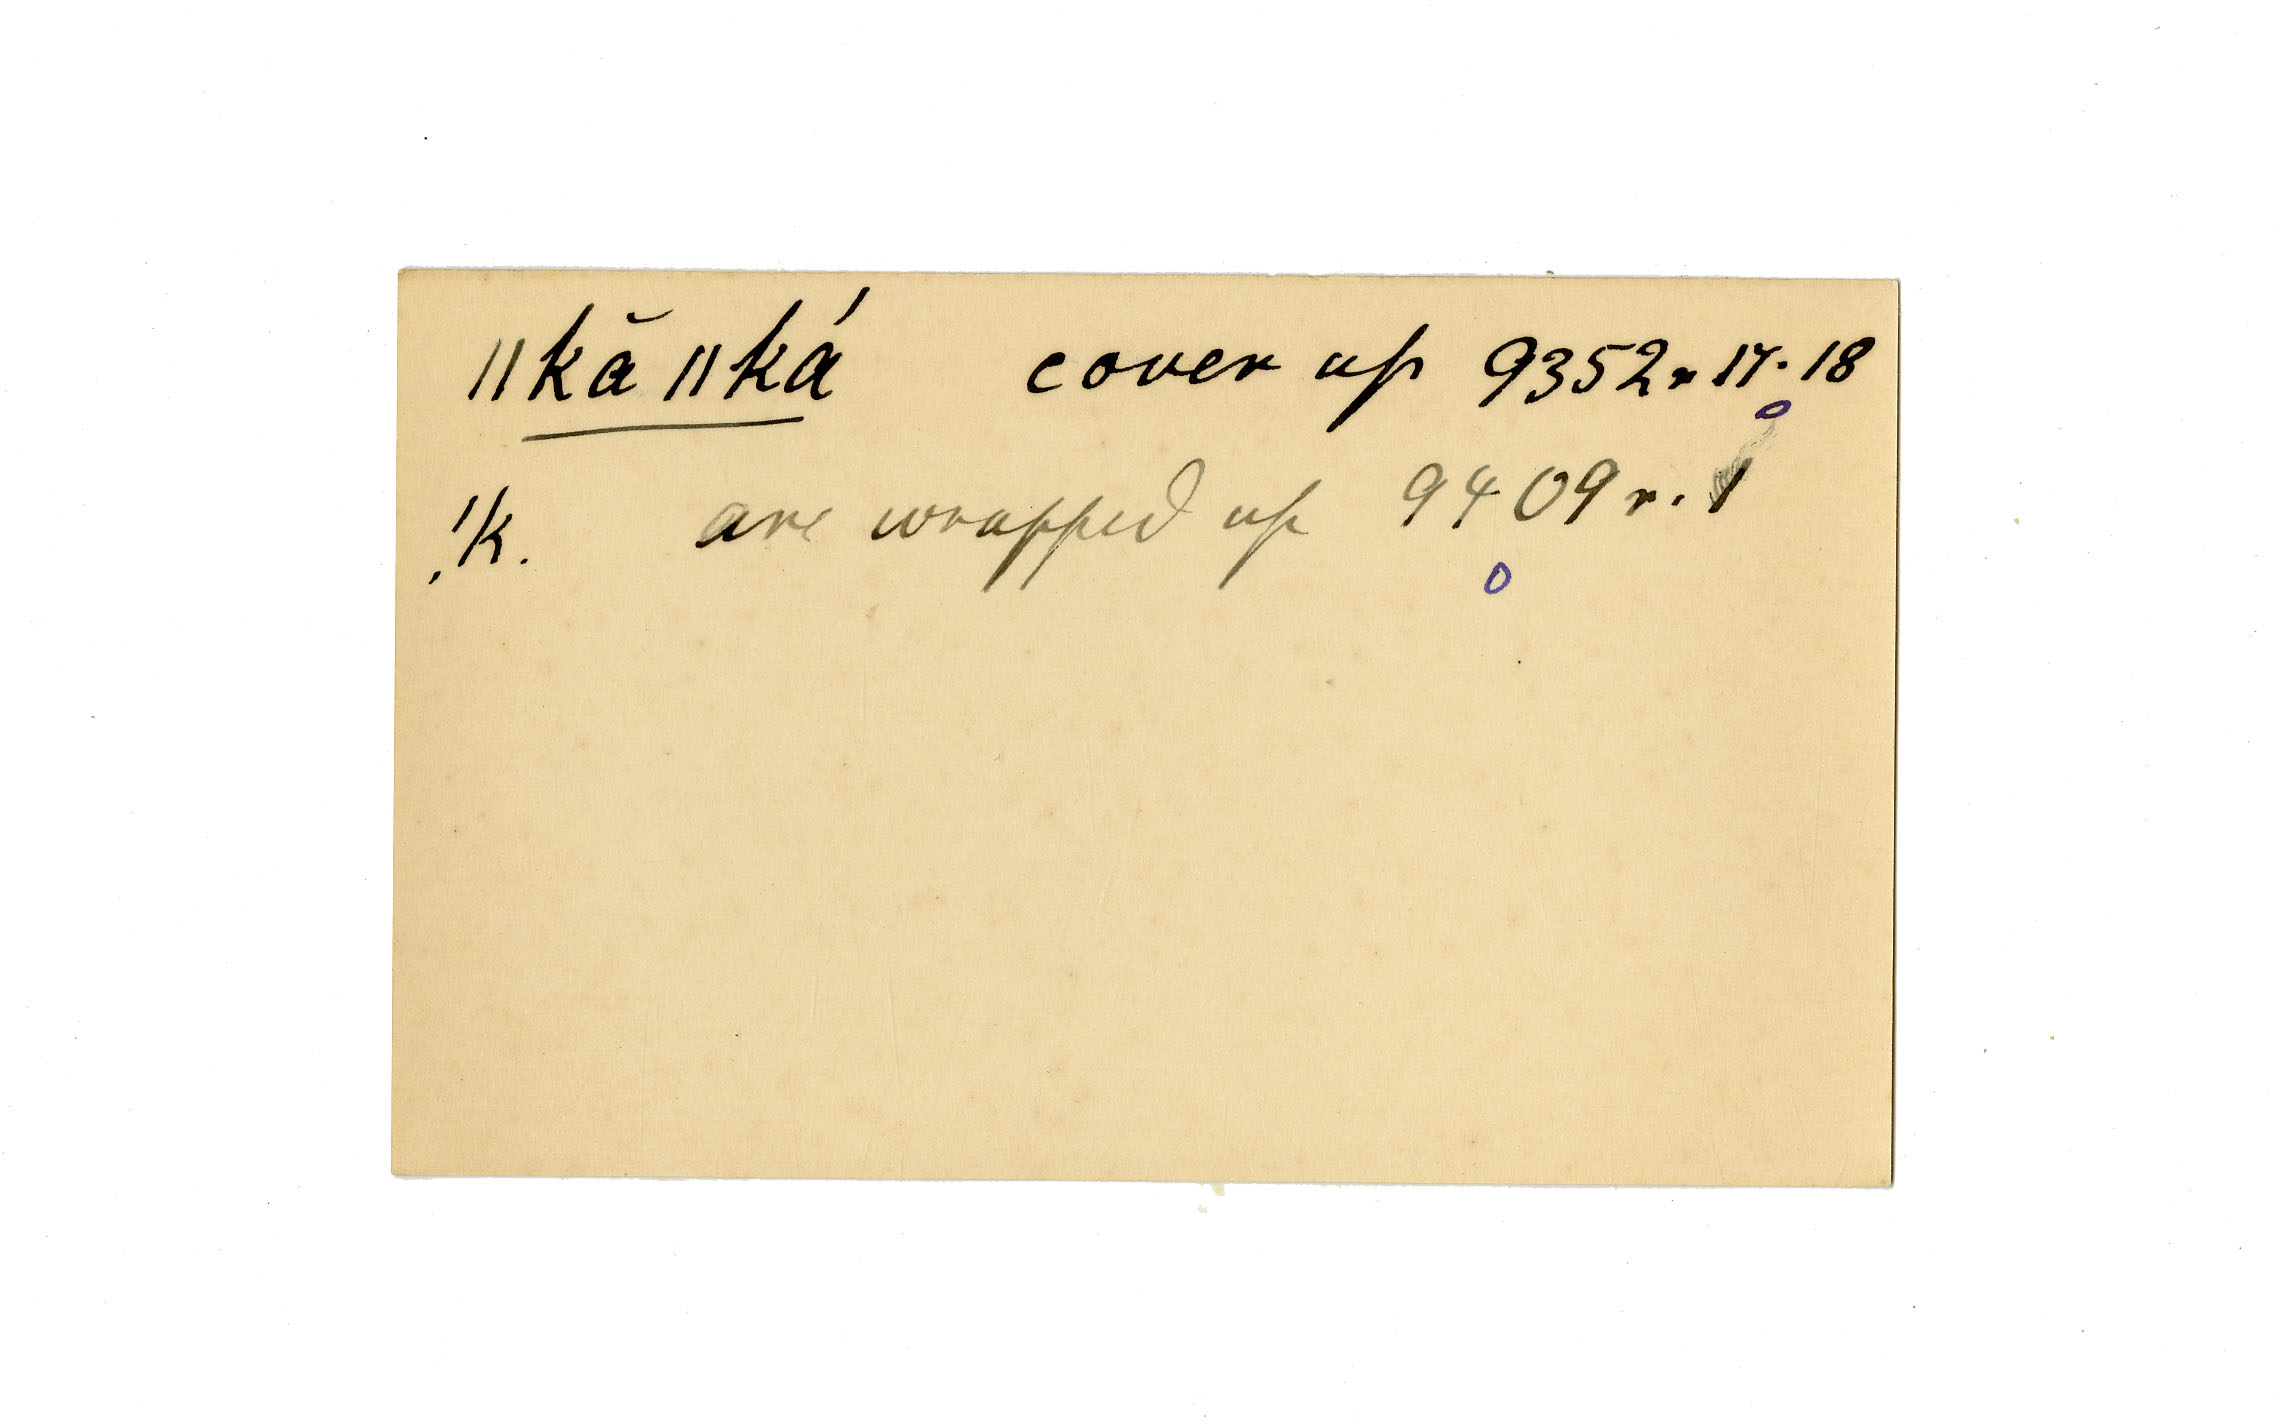 ǁkă ǁká cover up 9352 r. 17. 18
!k. are wrapped up 9409 r. 1